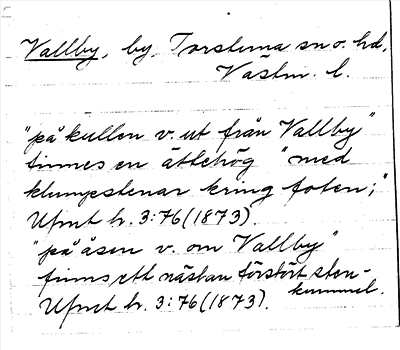 Vallby, by, Torstuna sn o. hd,
Västm. l.
"på kullen v. ut från Vallby"
finnes en ättehög "med
klumpstenar kring foten;"
Ufmt h. 3:76 (1873).
"på åsen v. om Vallby"
finns ett nästan förstört sten-
kummel.
Ufmt h. 3:76 (1873).